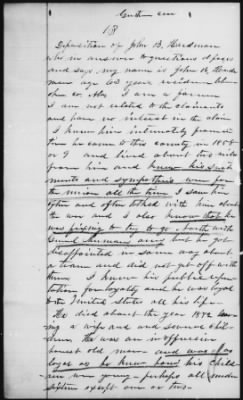 18
Deposition of John B. Hardman
who in answer to questions
and says my name is John B. Hard
man age 63 years residence
Co. Ala. I am a farmer
I am not related to the claimants
and have no interest in the claim
I knew him intimately from
he came to this county in 1858
or 9 and lived about two miles
from him and knew his senti
ments and sympathies were for
the union all the time I saw him
often and often talked with him about
the war and I also know that he
was fixing to try to go north with
army but he got
disappointed in some way about
a team and did not get off with
them I know his public repu
tation for loyalty and he was loyal
to the United States all his life.
He died about the year 1872 leav
ing a wife and and several chil
dren He was an inoffensive
honest old man and was as
loyal as he knew how his child
ren were young perhaps all under
sixteen except one or two